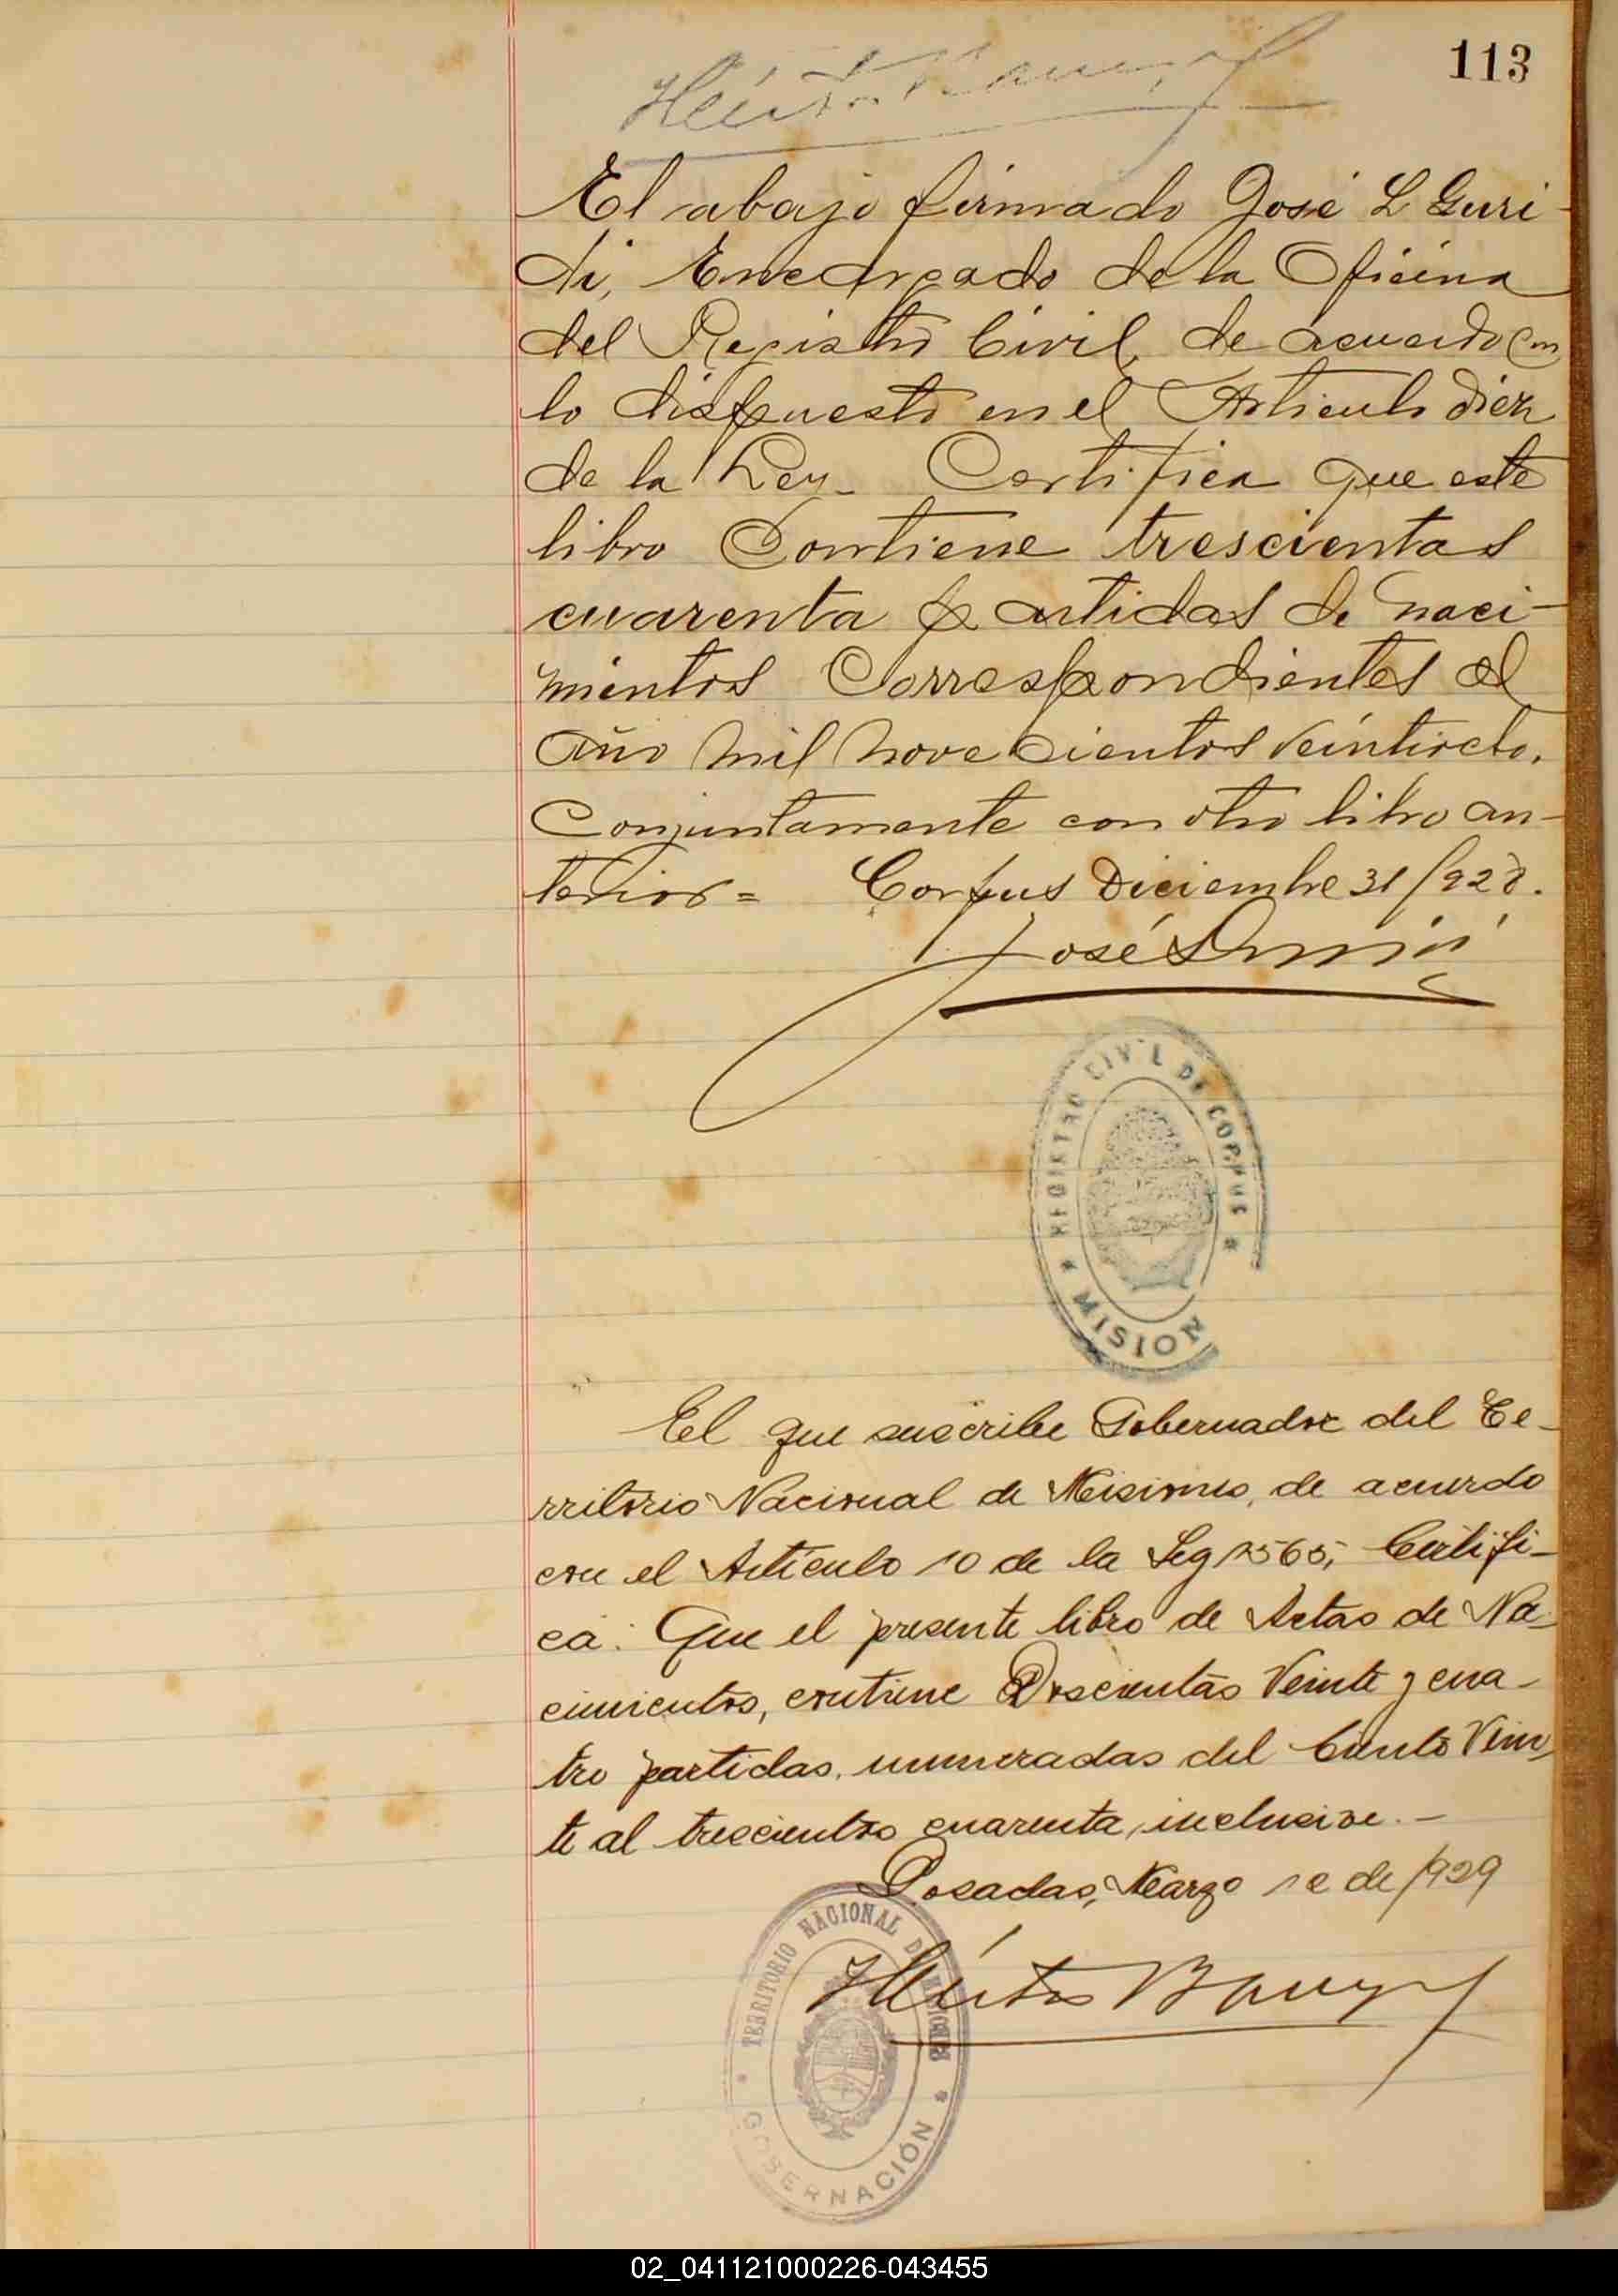 113
Héctor Barreyro
El abajo firmado José L Guri-
di, Encargado de la Oficina
del Registro Civil, de acuerdo con
lo dispuesto en el Articulo diez
de la Ley_ Certifica que este
libro Contiene trescientas
cuarenta partidas de naci-
mientos Correspondientes al
año mil novecientos veintiocho,
Conjuntamente con otro libro an-
terior= Corpus Diciembre 31/928.
José Guridi
REGISTRO CIVIL DE CORPUS
* MISION
El que suscribe Gobernador del Te-
rritorio Nacional de Misiones, de acuerdo
con el Artículo 10 de la Ley 1565, Certifi-
ca: Que el presente libro de Actas de Na-
cimientos, contiene Doscientas Veinte y cua-
tro partidas, numeradas del Ciento Vein-
te al trescientos cuarenta, inclusive.-
Posadas, Marzo de 1929
Héctor Barreyro
TERRITORIO NACIONAL DE MISIONES
* GOBERNACIÓN *
02_041121000226-043455